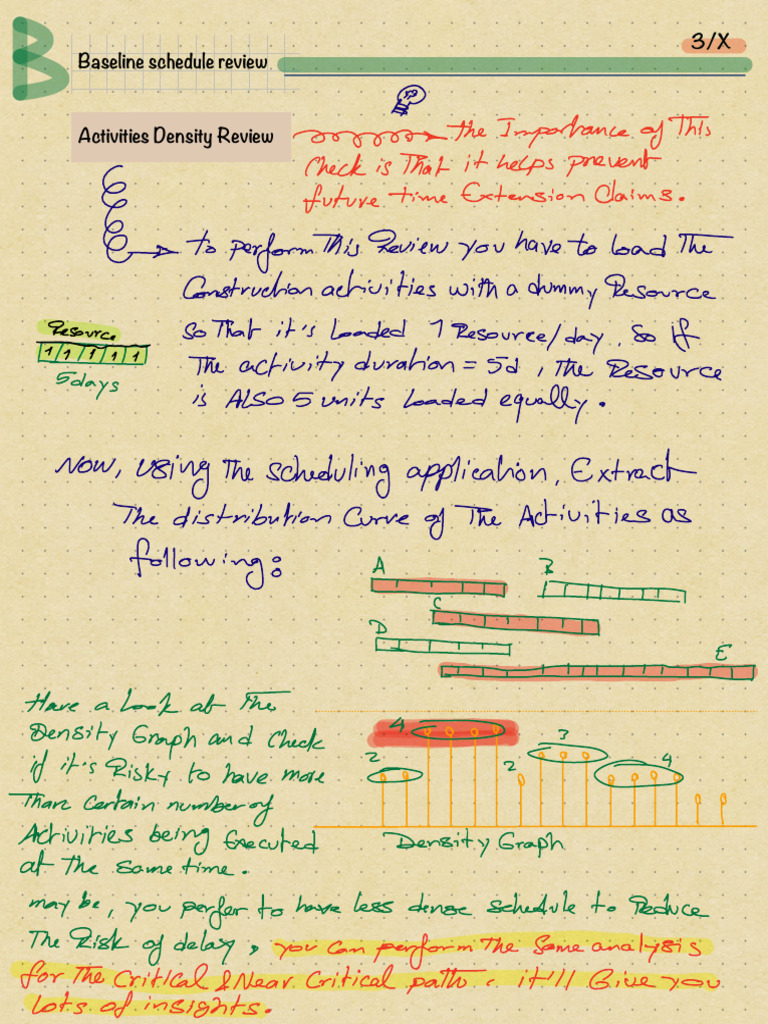 B
3/X
Baseline schedule review
Activities Density Review
the Importance of This
Check is That it helps prevent
future time Extension Claims.
to perform This Review you have to load The
Construction activities with a dummy Resource
so That it's Loaded 1 Resource/day. So if
The activity duration = 5d, the Resource
is ALSO 5 units Loaded equally.
Resource
1 1 1 1 1
5days
Now, Using The scheduling application, Extract
The distribution Curve of The Activities as
following:
A
B
C
D
E
Have a Look at The
Density Graph and Check
if it's Risky to have more
Than Certain number of
Activities being Executed
at The Same time.
2
4
2
3
4
Density Graph
may be, you perfer to have less dense schedule to Reduce
The Risk of delay, you can perform The Same analysis
for The Critical & Near Critical path. it'll Give you
Lots of insights.